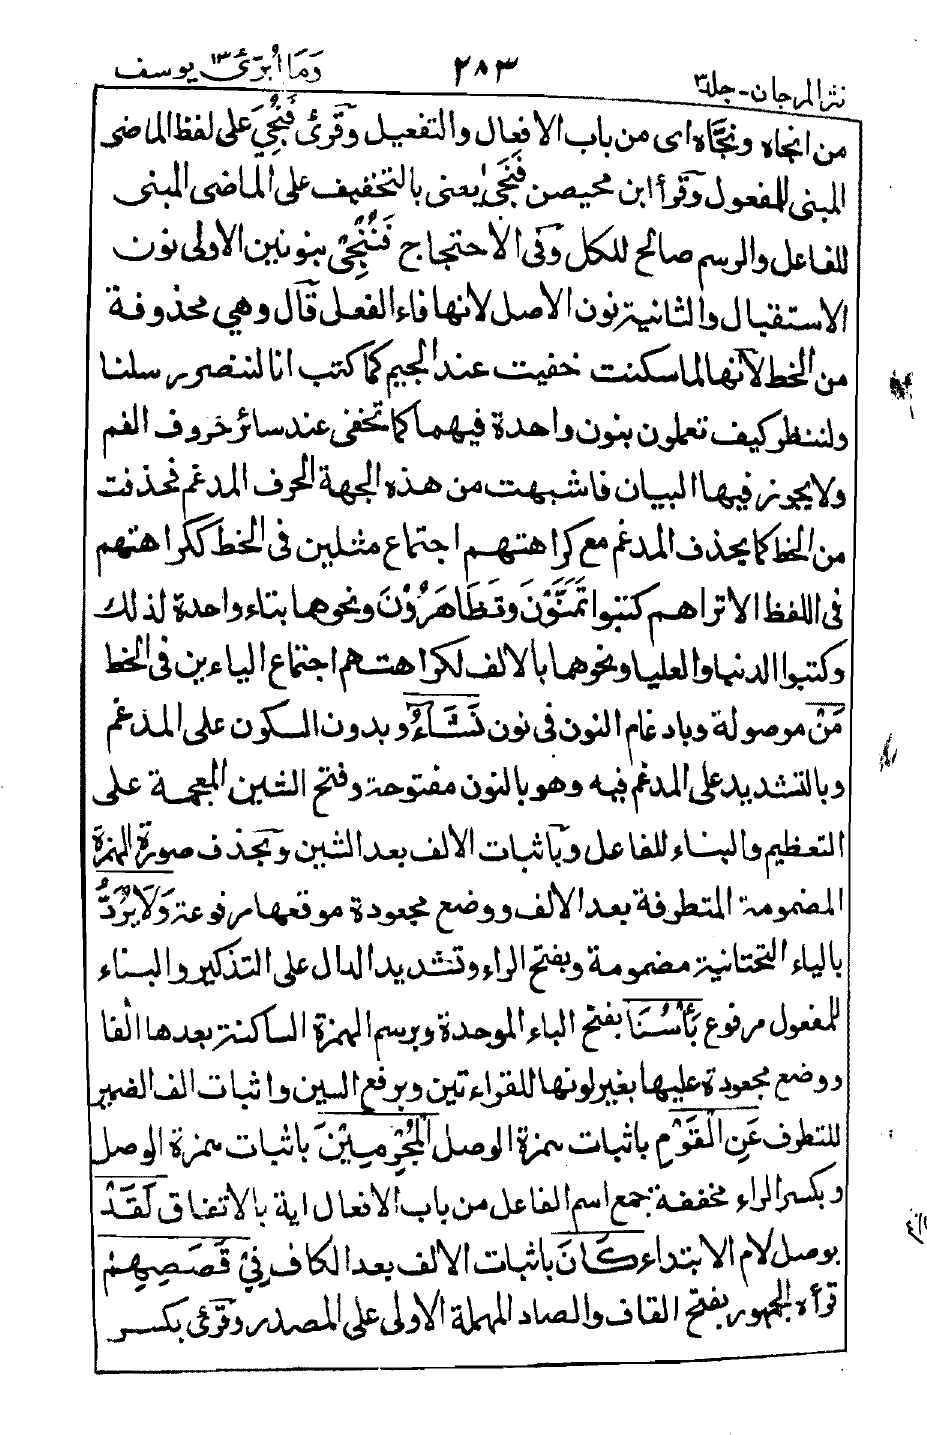 نثر المرجان - جلد ٣ ٢٨٣ وَمَا أُبَرِّئُ ١٣ يوسف
من انجاه ونجَّاه اى من باب الافعال والتفعيل وقرئ فَنُجِّيَ على لفظ الماضى
المبنى للمفعول وقرأ ابن محيصن فَنَجَىٰ يعنى بالتخفيف على الماضى المبنى
للفاعل والرسم صالح للكل وفى الاحتجاج فَنُنْجِىْ بنونين الاولى نون
الاستقبال والثانية نون الاصل لانها فاء الفعل قال وهي محذوفة
من الخط لانها لما سكنت خفيت عند الجيم كما كتب انا لننصر رسلنا
ولننظر كيف تعملون بنون واحدة فيهما كما تخفى عند سائر حروف الفم
ولا يجوز فيها البيان فاشبهت من هذه الجهة الحرف المدغم فحذفت
من الخط كما يحذف المدغم مع كراهتهم اجتماع مثلين فى الخط ككراهتهم
فى اللفظ الا تراهم كتبوا تَمَنَّوْنَ وتَظَاهَرُوْنَ ونحوها بتاء واحدة لذلك
وكتبوا الدنيا والعليا ونحوها بالالف لكراهتهم اجتماع الياءين فى الخط
مَنْ موصولة وبادغام النون فى نون نَشَاءُ وبدون السكون على المدغم
وبالتشديد على المدغم فيه وهو بالنون مفتوحة وفتح الشين المعجمة على
التعظيم والبناء للفاعل وباثبات الالف بعد الشين وبحذف صورة الهمزة
المضمومة المتطرفة بعد الالف ووضع مجعودة موقعها مرفوعة وَلَا يُرَدُّ
بالياء التحتانية مضمومة وبفتح الراء وتشديد الدال على التذكير والبناء
للمفعول مرفوع بَأْسُنَا بفتح الباء الموحدة وبرسم الهمزة الساكنة بعدها الفا
ووضع مجعودة عليها بغير لونها للقراءتين وبرفع السين واثبات الف الضمير
للتطرف عَنِ الْقَوْمِ باثبات همزة الوصل الْمُجْرِمِيْنَ باثبات همزة الوصل
وبكسر الراء مخففة جمع اسم الفاعل من باب الافعال اية بالاتفاق لَقَدْ
بوصل لام الابتداء كَانَ باثبات الالف بعد الكاف فِىْ قَصَصِهِمْ
قرأه الجمهور بفتح القاف والصاد المهملة الاولى على المصدر وقرئ بكسر